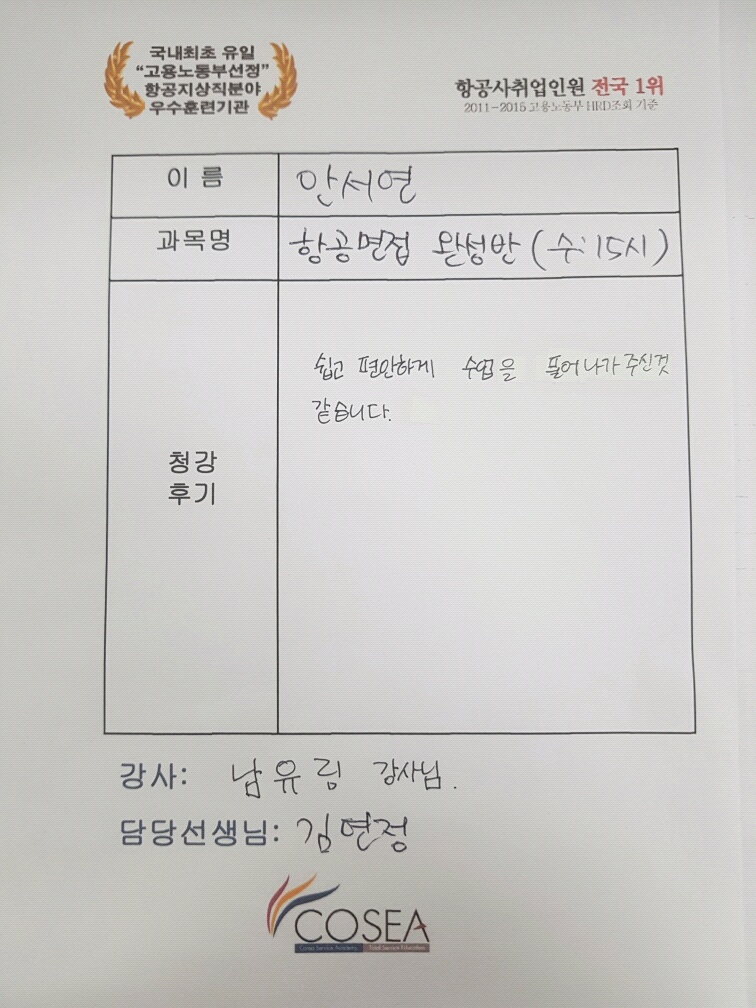 국내최초 유일
“고용노동부선정”
항공지상직분야
우수훈련기관
항공사취업인원 전국 1위
2011-2015 고용노동부 HRD조회 기준
이 름 안서연
과목명 항공면접 완성반 (수:15시)
청강
후기
쉽고 편안하게 수업을 풀어나가주신것
같습니다.
강사: 남유림 강사님.
담당선생님: 김연정
COSEA
Cosea Service Academy Total Service Education